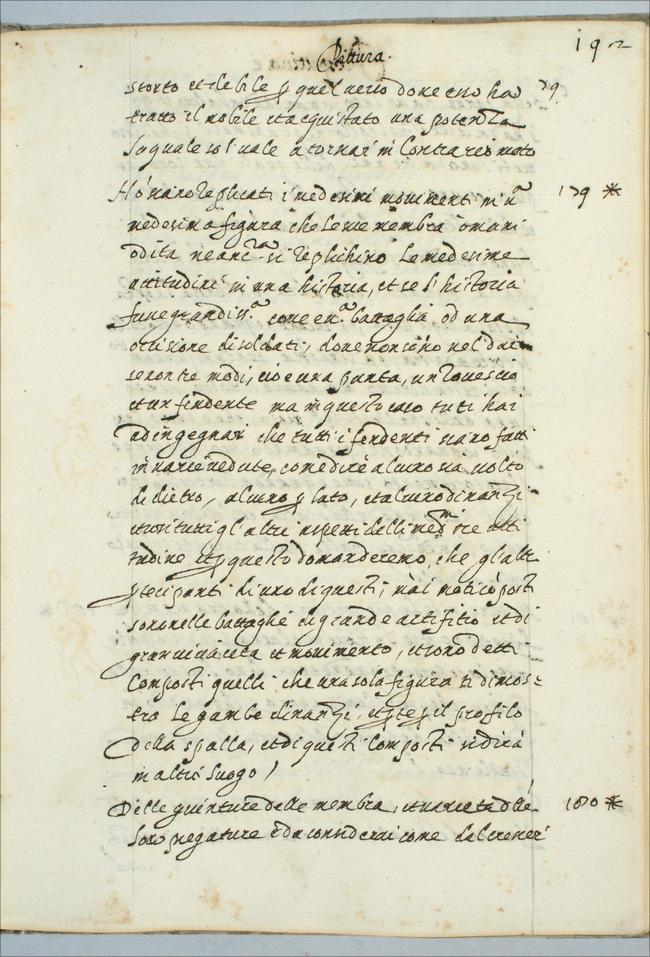 Pittura.
192
storto et debile p quel verso donde esso ha
79
tratto il nobile et acquistato una potenza
la quale vale a tornar in contrario moto
Nō siano replicati i medesimi movimenti in una
179 *
medesima figura che le sue membra o mani
o dita ne anc.ᵃ si replichino le medesime
attitudini in una historia, et se l'historia
fusse grandiss.ᵃ come una battaglia od una
occisione di soldati, dove non sono nel dare
se non tre modi, cio e una punta, un rovescio
et un fendente ma in questo caso tu ti hai
ad ingegnar che tutti i fendenti siano fatti
in varie vedute, come dire alcuno sia volto
di dietro, alcuno p lato, et alcuno dinanzi
et così tutti gl'altri aspetti delli med.ᵐⁱ tre atti
tudine et p questo domanderemo, che gl'altri
partecipanti di uno di questi, mai moti cōposti
sono nelle battaglie di grande artifitio et di
gran vivacità et movimento, et sono detti
composti quelli che una sola figura ti dimos=
tra le gambe dinanzi, et parte p il profilo
della spalla, et di questi composti si dirà
in altro luogo /
Delle giunture delle membra, et varietà delle
180 *
loro piegature è da considerar come dal crescer